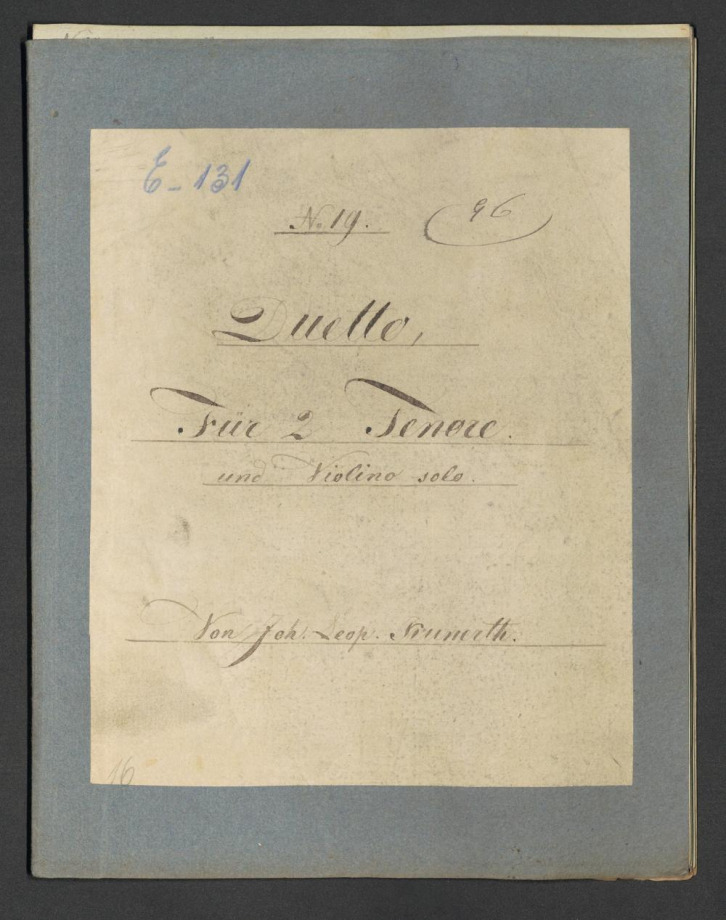 E-131
No. 19. 96
Duetto,
Für 2 Tenore.
und Violino solo.
Von Joh. Leop. Kunerth.
16